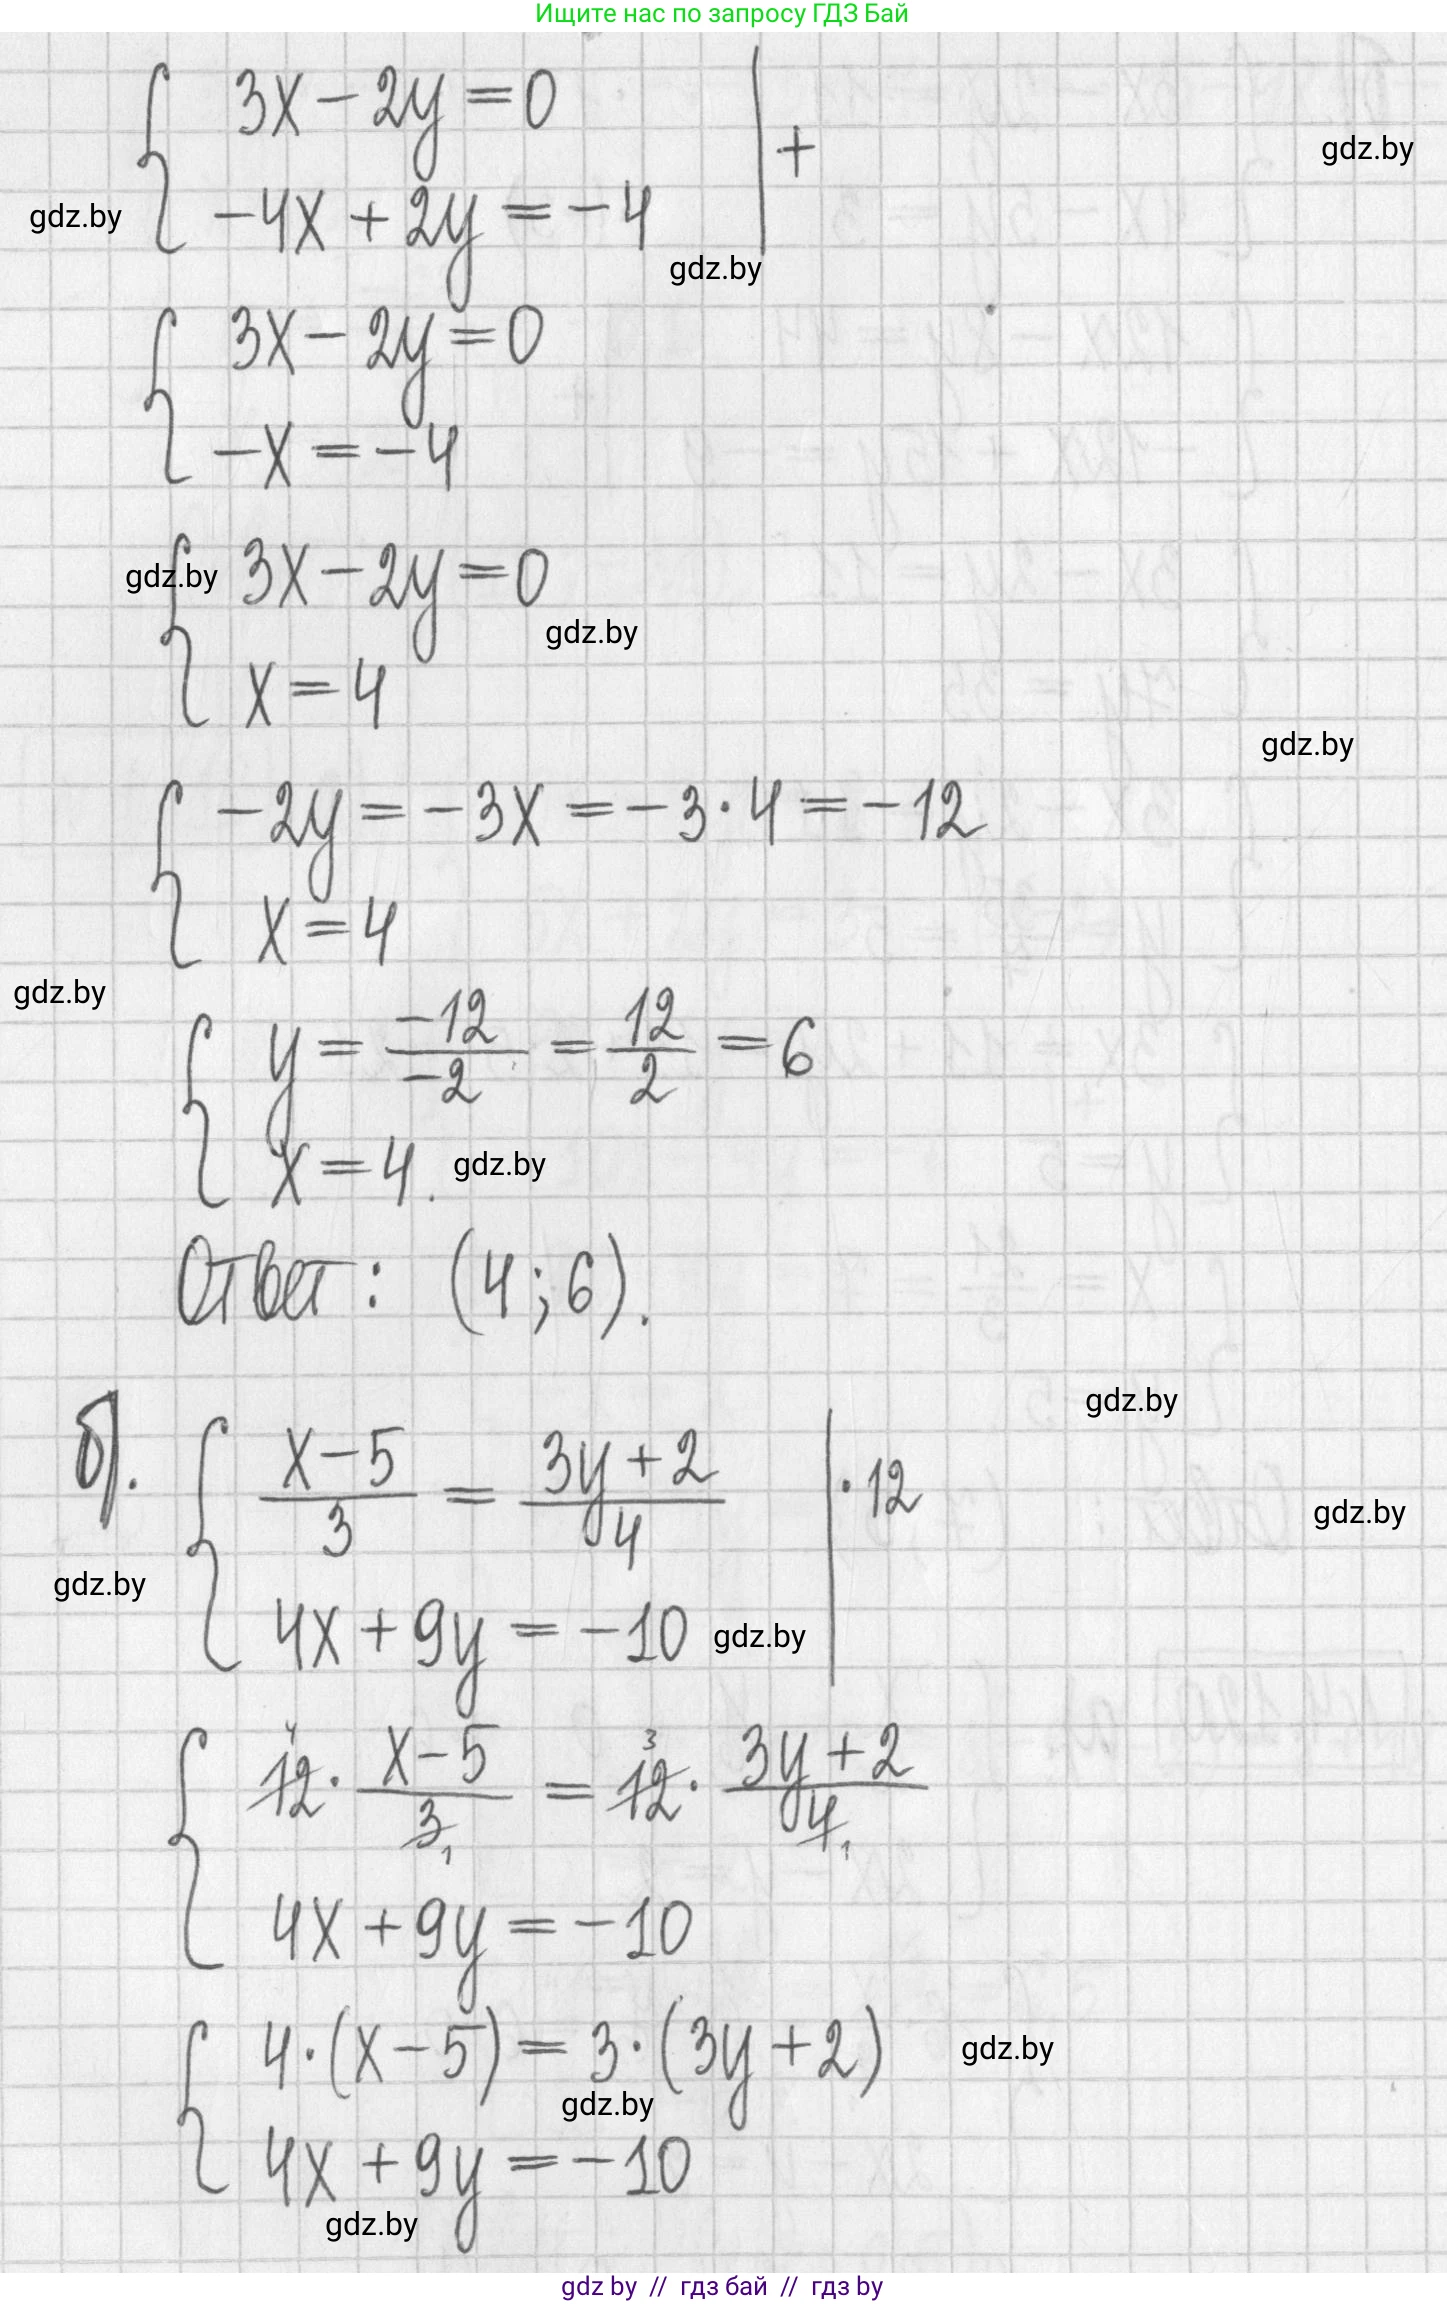 Ищите нас по запросу ГДЗ Бай
3x − 2y = 0 | +
gdz.by
gdz.by
−4x + 2y = −4
gdz.by
3x − 2y = 0
−x = −4
gdz.by 3x − 2y = 0
gdz.by
x = 4
gdz.by
−2y = −3x = −3·4 = −12
x = 4
gdz.by
y = −12/−2 = 12/2 = 6
x = 4. gdz.by
Ответ: (4; 6).
gdz.by
б). (x−5)/3 = (3y+2)/4 | ·12
gdz.by
gdz.by
4x + 9y = −10 gdz.by
12⁴ · (x−5)/3₁ = 12³ · (3y+2)/4₁
4x + 9y = −10
4·(x−5) = 3·(3y+2) gdz.by
gdz.by
4x + 9y = −10
gdz.by
gdz by // гдз бай // гдз by